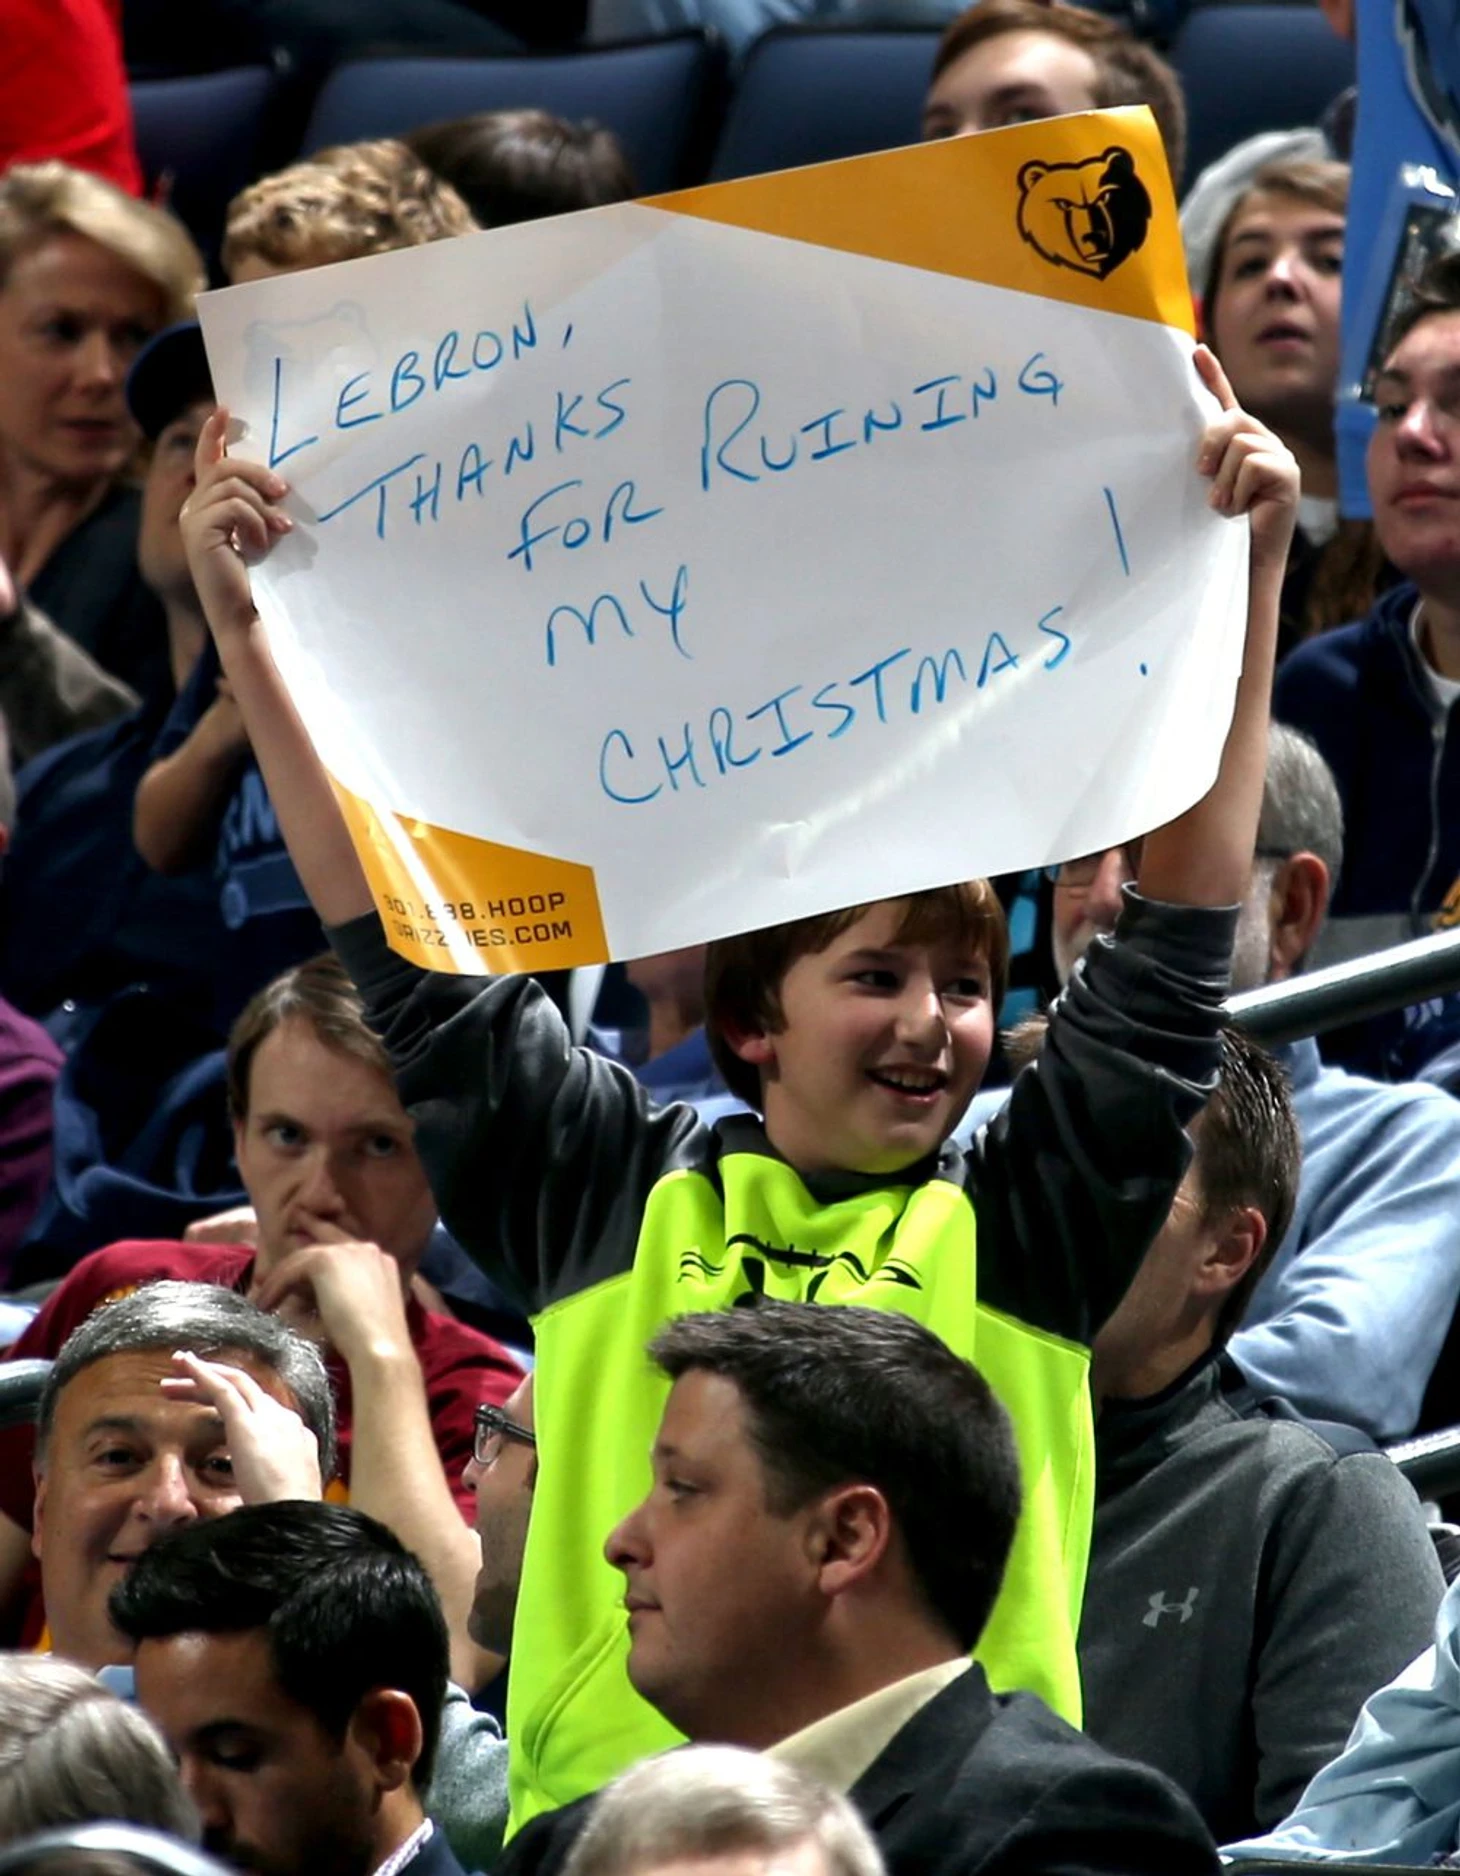 LEBRON,
THANKS
FOR RUINING
MY
CHRISTMAS!
901.888.HOOP
GRIZZLIES.COM